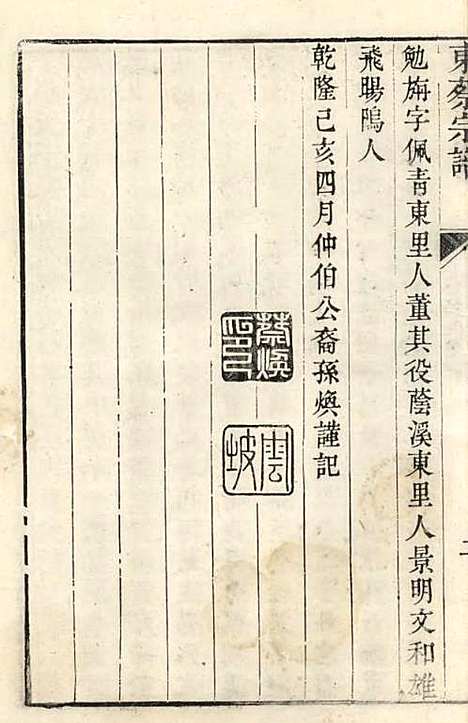 東蔡宗譜
勉旃字佩青東里人董其役蔭溪東里人景明文和雄
飛暘鳴人
乾隆己亥四月仲伯公裔孫煥謹記
蔡煥
雲坡